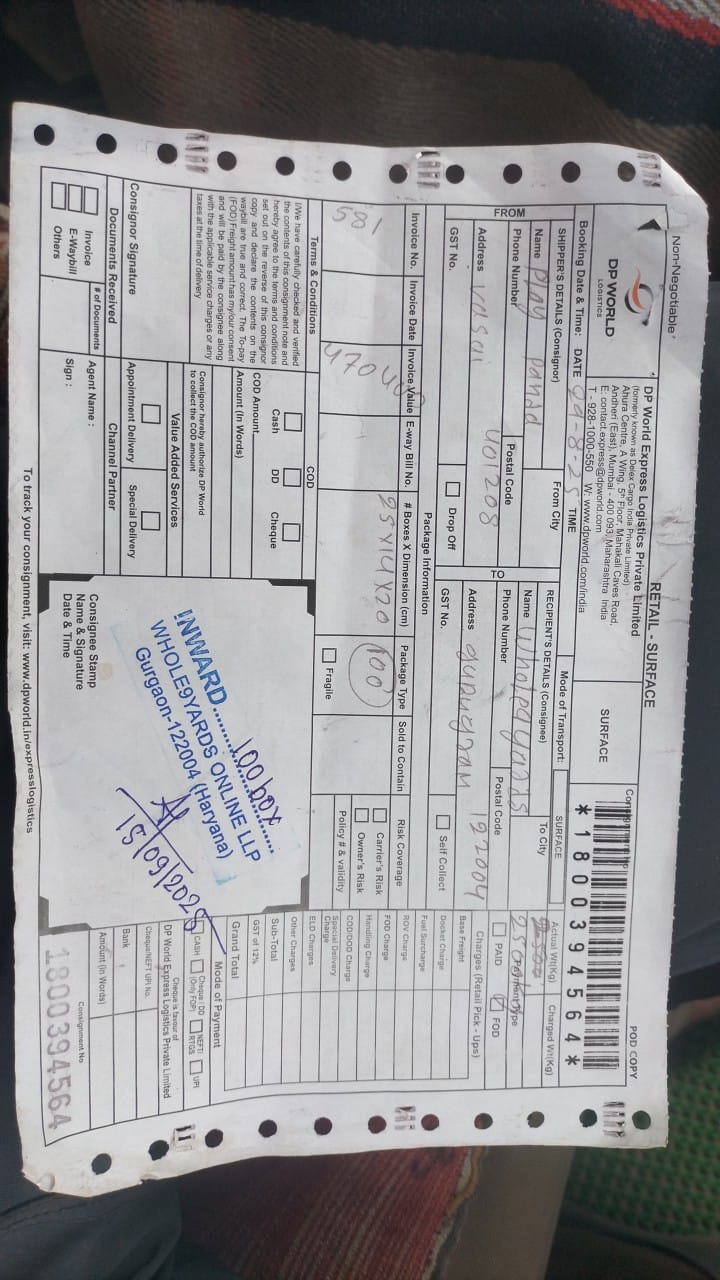 Non-Negotiable
RETAIL - SURFACE
POD COPY
DP WORLD
LOGISTICS
DP World Express Logistics Private Limited
(formerly known as Delex Cargo India Private Limited)
Ahura Centre, A Wing, 5th Floor, Mahakali Caves Road,
Andheri (East), Mumbai - 400 093, Maharashtra India
E: contact.express@dpworld.com
T - 928-1000-550 W: www.dpworld.com/india
SURFACE
Consignment No
*1800394564*
Booking Date & Time: DATE 29-8-25 TIME
Mode of Transport: SURFACE
Actual Wt(Kg) Charged Wt(Kg)
2500
FROM
SHIPPER'S DETAILS (Consignor) From City
Name Play Panda
Phone Number Postal Code
401208
Address Vasai
GST No. Drop Off
TO
RECIPIENT'S DETAILS (Consignee) To City
Name Whole9yards
Phone Number Postal Code
122004
Address gurugram
GST No. Self Collect
Payment Type
PAID FOD
Charges (Retail Pick - Ups)
Base Freight
Docket Charge
Fuel Surcharge
ROV Charge
FOD Charge
Handling Charge
COD/DOD Charge
Special Delivery Charge
ELD Charges
Other Charges
Sub-Total
GST of 12%
Grand Total
Package Information
Invoice No. Invoice Date Invoice Value E-way Bill No. # Boxes X Dimension (cm) Package Type Sold to Contain Risk Coverage
581
25x14x20
100
Fragile
Carrier's Risk
Owner's Risk
Policy # & validity
Terms & Conditions
I/We have carefully checked and verified
the contents of this consignment note and
hereby agree to the terms and conditions
set out on the reverse of this consignor
copy and declare the contents on the
waybill are true and correct. The To-pay
(FOD) Freight amount has my/our consent
and will be paid by the consignee along
with the applicable service charges or any
taxes at the time of delivery
Consignor Signature
COD
Cash DD Cheque
COD Amount
Amount (In Words)
Consignor hereby authorize DP World
to collect the COD amount
Value Added Services
Appointment Delivery Special Delivery
Documents Received Channel Partner
Invoice
E-Waybill
Others
# of Documents
Agent Name :
Sign :
INWARD
100 box
WHOLE9YARDS ONLINE LLP
Gurgaon-122004 (Haryana)
15/09/2025
Consignee Stamp
Name & Signature
Date & Time
Mode of Payment
CASH Cheque / DD (Only FOP) NEFT/ RTGS UPI
Cheque is favour of
DP World Express Logistics Private Limited
Cheque/NEFT UPI No.
Bank
Amount (In Words)
Consignment No
1800394564
To track your consignment, visit: www.dpworld.in/expresslogistics